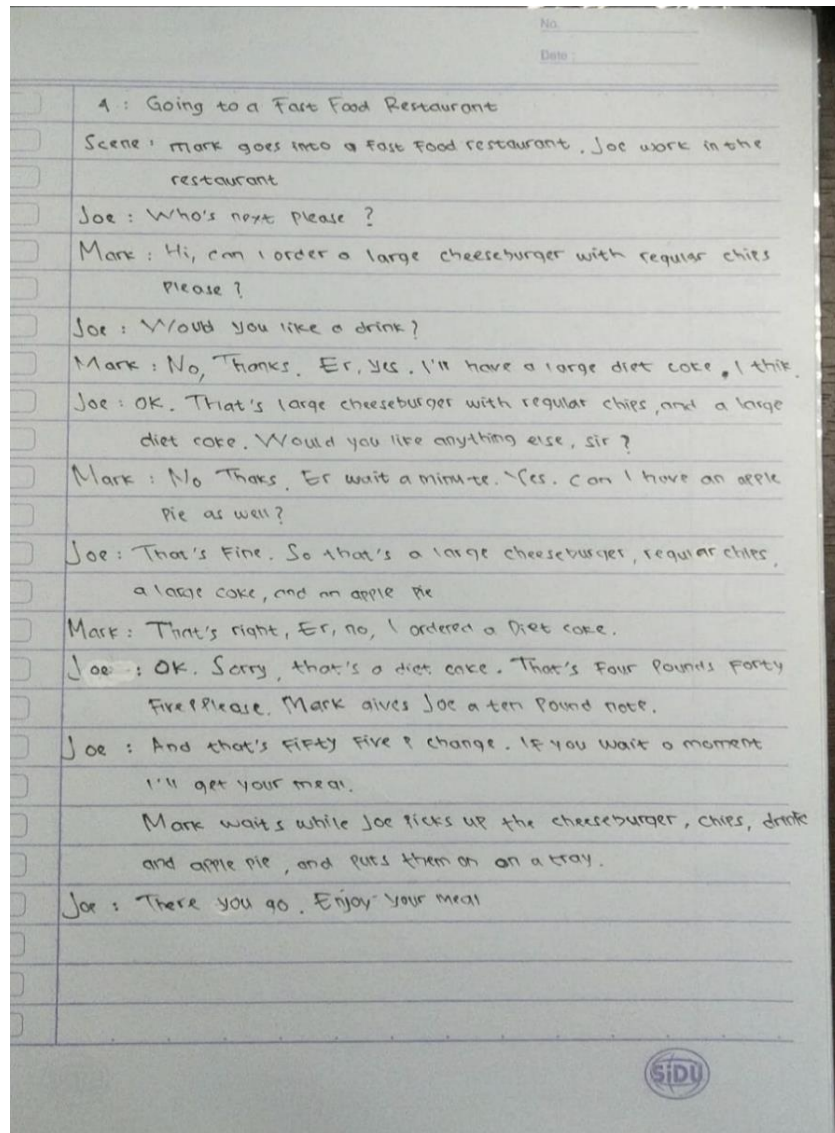 No.
Date :
4 : Going to a Fast Food Restaurant
Scene : Mark goes into a Fast Food restaurant. Joe work in the
restaurant
Joe : Who's next please ?
Mark : Hi, can I order a large cheeseburger with regular chips
please ?
Joe : Woud you like a drink?
Mark : No, Thanks. Er, yes. I'll have a large diet coke, I thik.
Joe : OK. That's large cheeseburger with regular chips, and a large
diet coke. Would you like anything else, sir ?
Mark : No Thaks. Er wait a minute. Yes. Can I have an apple
pie as well?
Joe : That's Fine. So that's a large cheeseburger, regular chips,
a large coke, and an apple pie
Mark : That's right, Er, no, I ordered a Diet coke.
Joe : OK. Sorry, that's a diet coke. That's Four Pounds Forty
Five P Please. Mark gives Joe a ten Pound note.
Joe : And that's FiFty Five P change. IF you wait a moment
I'll get your meal.
Mark waits while Joe Picks up the cheeseburger, chips, drink
and apple pie, and puts them on on a tray.
Joe : There you go. Enjoy your meal
SiDU